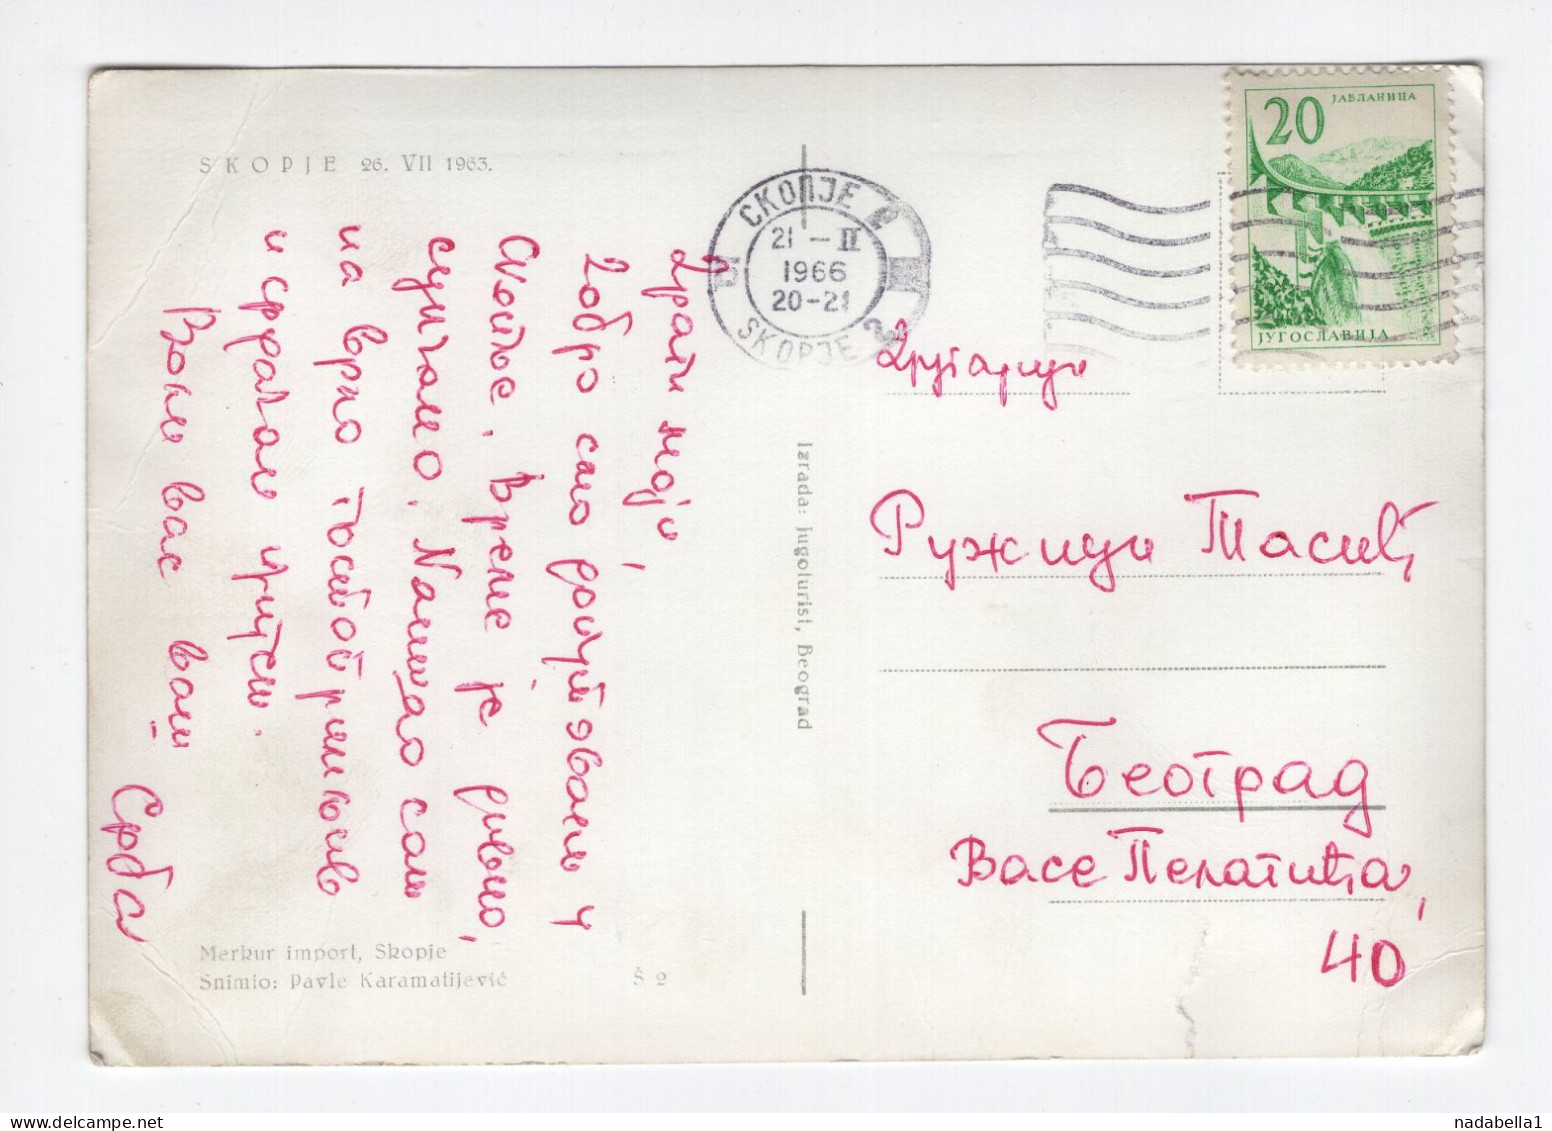 SKOPJE 26. VII 1963.
Драги моји,
Добро смо допутовали у
Скопље. Време је дивно,
сунчано. Нашао сам
на врло
и срдачан пријем.
Воли вас ваш
Срба
Merkur import, Skopje
Snimio: Pavle Karamatijević
Š 2
Izrada: Jugoturist, Beograd
СКОПЈЕ 2
21-II
1966
20-21
SKOPJE 2
20
ЈАБЛАНИЦА
ЈУГОСЛАВИЈА
Другарици
Ружици Тасић
Београд
Васе Пелагића,
40
nadabella1